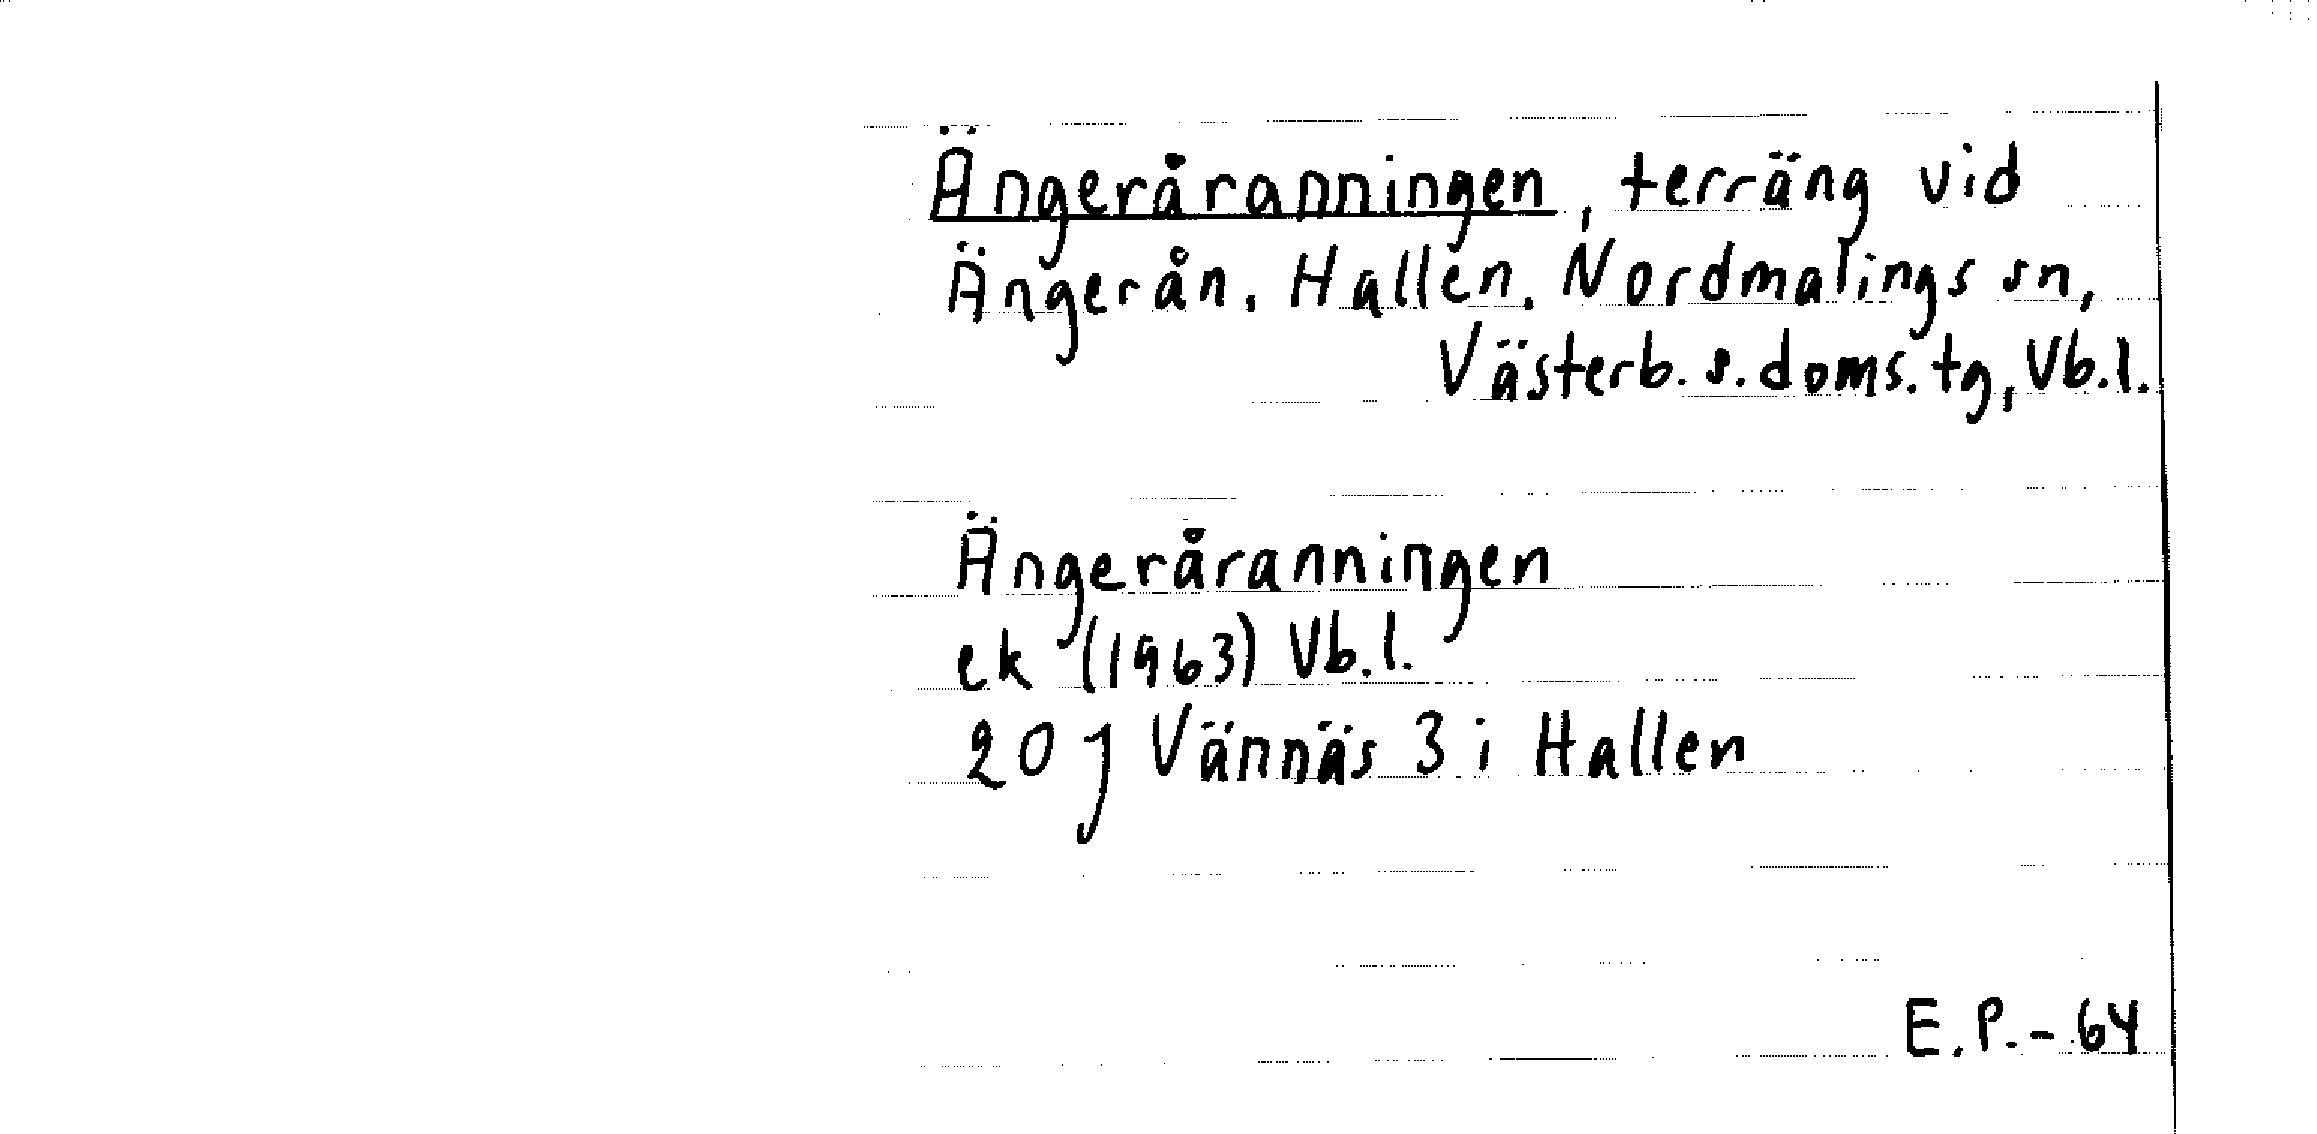 Ängeråranningen, terräng vid
Ängerån. Hallen. Nordmalings sn,
Västerb. s. doms. tg, Vb.l.
Ängeråranningen
ek (1963) Vb.l.
20 J Vännäs 3 i Hallen
E.P.-64